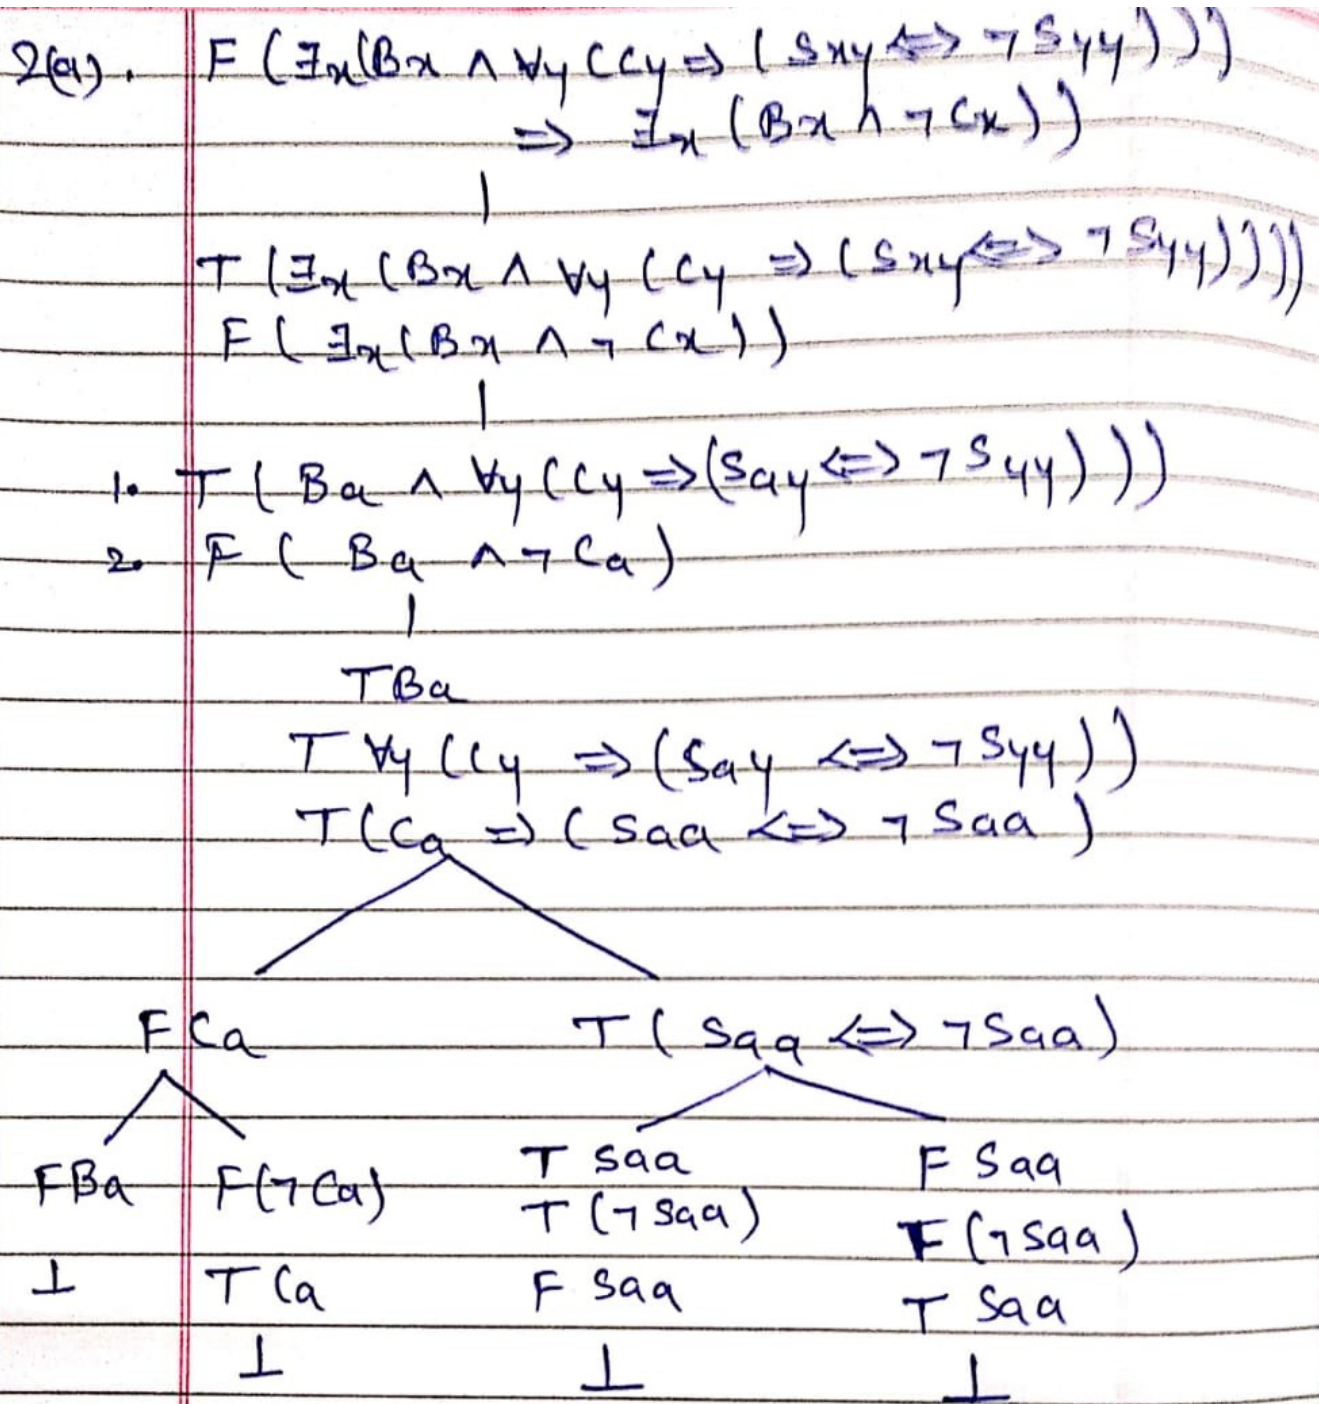 2(a). F (∃x(Bx ∧ ∀y (Cy ⇒ (Sxy ⇔ ¬Syy)))
⇒ ∃x (Bx ∧ ¬Cx))
T (∃x (Bx ∧ ∀y (Cy ⇒ (Sxy ⇔ ¬Syy))))
F (∃x (Bx ∧ ¬Cx))
1. T (Ba ∧ ∀y (Cy ⇒ (Say ⇔ ¬Syy)))
2. F (Ba ∧ ¬Ca)
TBa
T ∀y (Cy ⇒ (Say ⇔ ¬Syy))
T(Ca ⇒ (Saa ⇔ ¬Saa)
FCa T (Saa ⇔ ¬Saa)
FBa F(¬Ca) T Saa F Saa
T (¬Saa) F (¬Saa)
⊥ T Ca F Saa T Saa
⊥ ⊥ ⊥